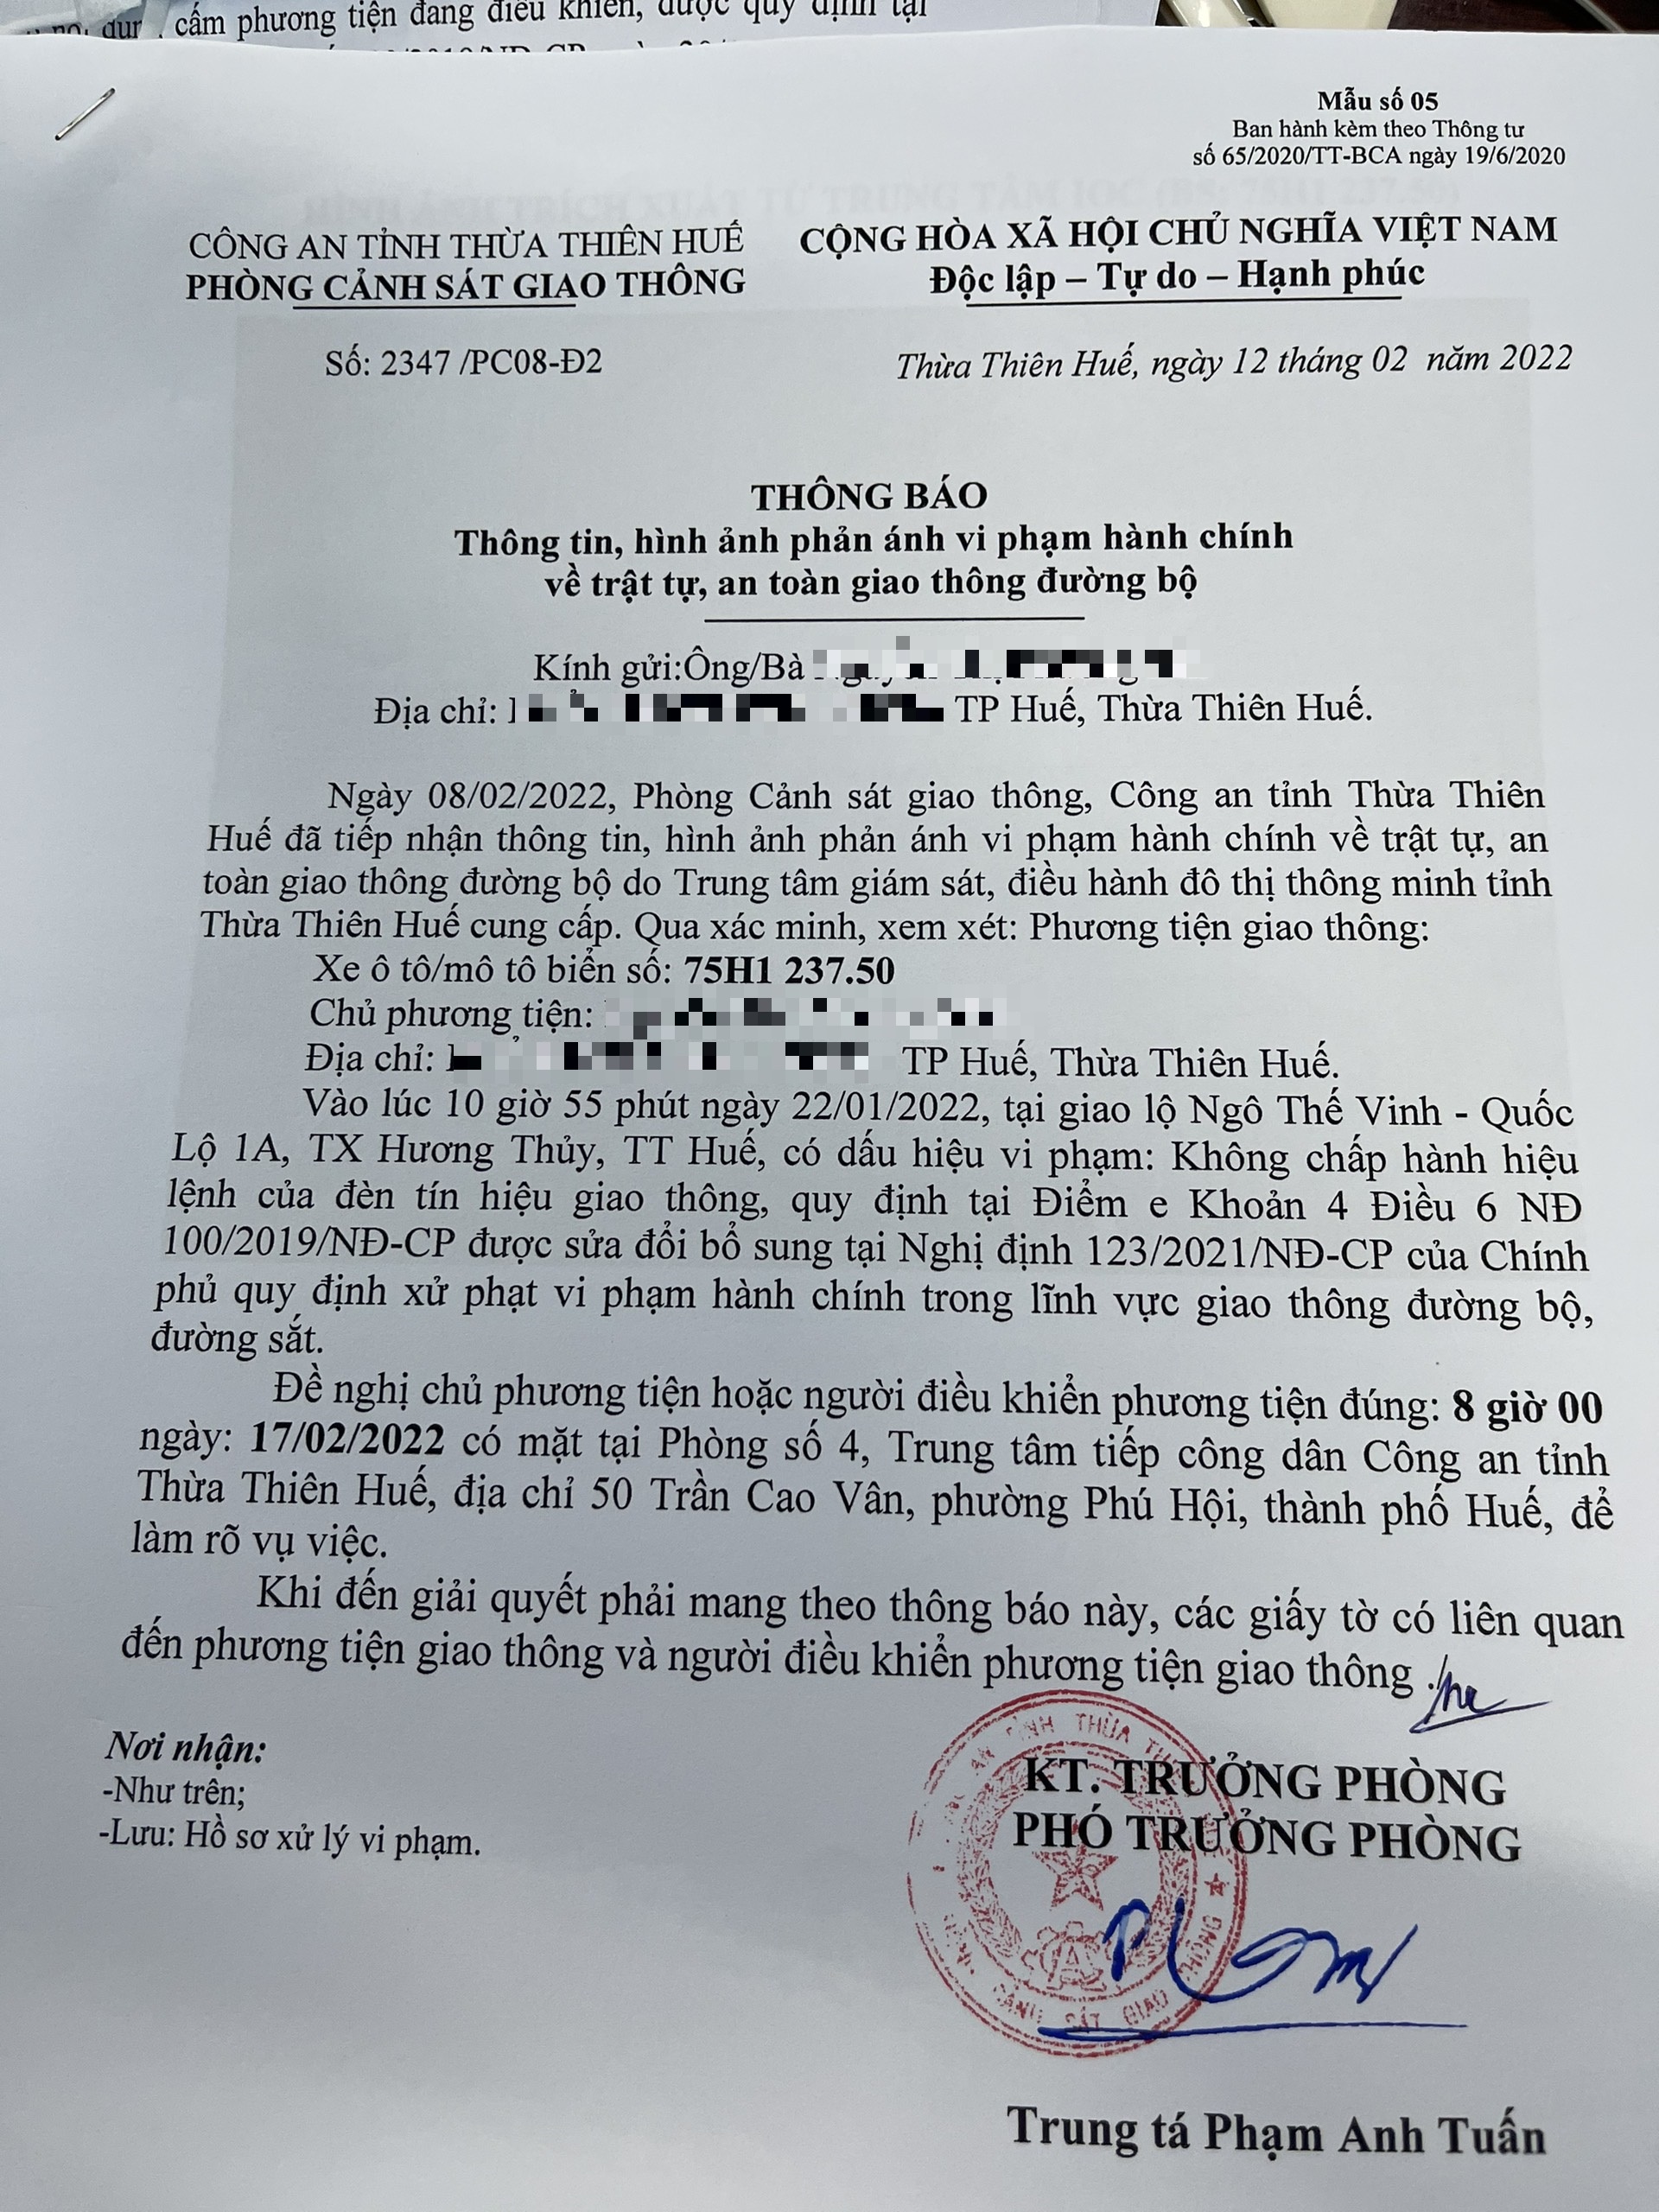 cấm phương tiện đang điều khiển, được quy định tại
Mẫu số 05
Ban hành kèm theo Thông tư
số 65/2020/TT-BCA ngày 19/6/2020
HÌNH ẢNH TRÍCH XUẤT TỪ TRUNG TÂM IOC (BS: 75H1 237.50)
CÔNG AN TỈNH THỪA THIÊN HUẾ
PHÒNG CẢNH SÁT GIAO THÔNG
CỘNG HÒA XÃ HỘI CHỦ NGHĨA VIỆT NAM
Độc lập – Tự do – Hạnh phúc
Số: 2347 /PC08-Đ2
Thừa Thiên Huế, ngày 12 tháng 02 năm 2022
THÔNG BÁO
Thông tin, hình ảnh phản ánh vi phạm hành chính
về trật tự, an toàn giao thông đường bộ
Kính gửi:Ông/Bà
Địa chỉ: TP Huế, Thừa Thiên Huế.
Ngày 08/02/2022, Phòng Cảnh sát giao thông, Công an tỉnh Thừa Thiên
Huế đã tiếp nhận thông tin, hình ảnh phản ánh vi phạm hành chính về trật tự, an
toàn giao thông đường bộ do Trung tâm giám sát, điều hành đô thị thông minh tỉnh
Thừa Thiên Huế cung cấp. Qua xác minh, xem xét: Phương tiện giao thông:
Xe ô tô/mô tô biển số: 75H1 237.50
Chủ phương tiện:
Địa chỉ: TP Huế, Thừa Thiên Huế.
Vào lúc 10 giờ 55 phút ngày 22/01/2022, tại giao lộ Ngô Thế Vinh - Quốc
Lộ 1A, TX Hương Thủy, TT Huế, có dấu hiệu vi phạm: Không chấp hành hiệu
lệnh của đèn tín hiệu giao thông, quy định tại Điểm e Khoản 4 Điều 6 NĐ
100/2019/NĐ-CP được sửa đổi bổ sung tại Nghị định 123/2021/NĐ-CP của Chính
phủ quy định xử phạt vi phạm hành chính trong lĩnh vực giao thông đường bộ,
đường sắt.
Đề nghị chủ phương tiện hoặc người điều khiển phương tiện đúng: 8 giờ 00
ngày: 17/02/2022 có mặt tại Phòng số 4, Trung tâm tiếp công dân Công an tỉnh
Thừa Thiên Huế, địa chỉ 50 Trần Cao Vân, phường Phú Hội, thành phố Huế, để
làm rõ vụ việc.
Khi đến giải quyết phải mang theo thông báo này, các giấy tờ có liên quan
đến phương tiện giao thông và người điều khiển phương tiện giao thông ./.
Nơi nhận:
-Như trên;
-Lưu: Hồ sơ xử lý vi phạm.
KT. TRƯỞNG PHÒNG
PHÓ TRƯỞNG PHÒNG
AN TỈNH THỪA
CẢNH SÁT GIAO THÔNG
Trung tá Phạm Anh Tuấn